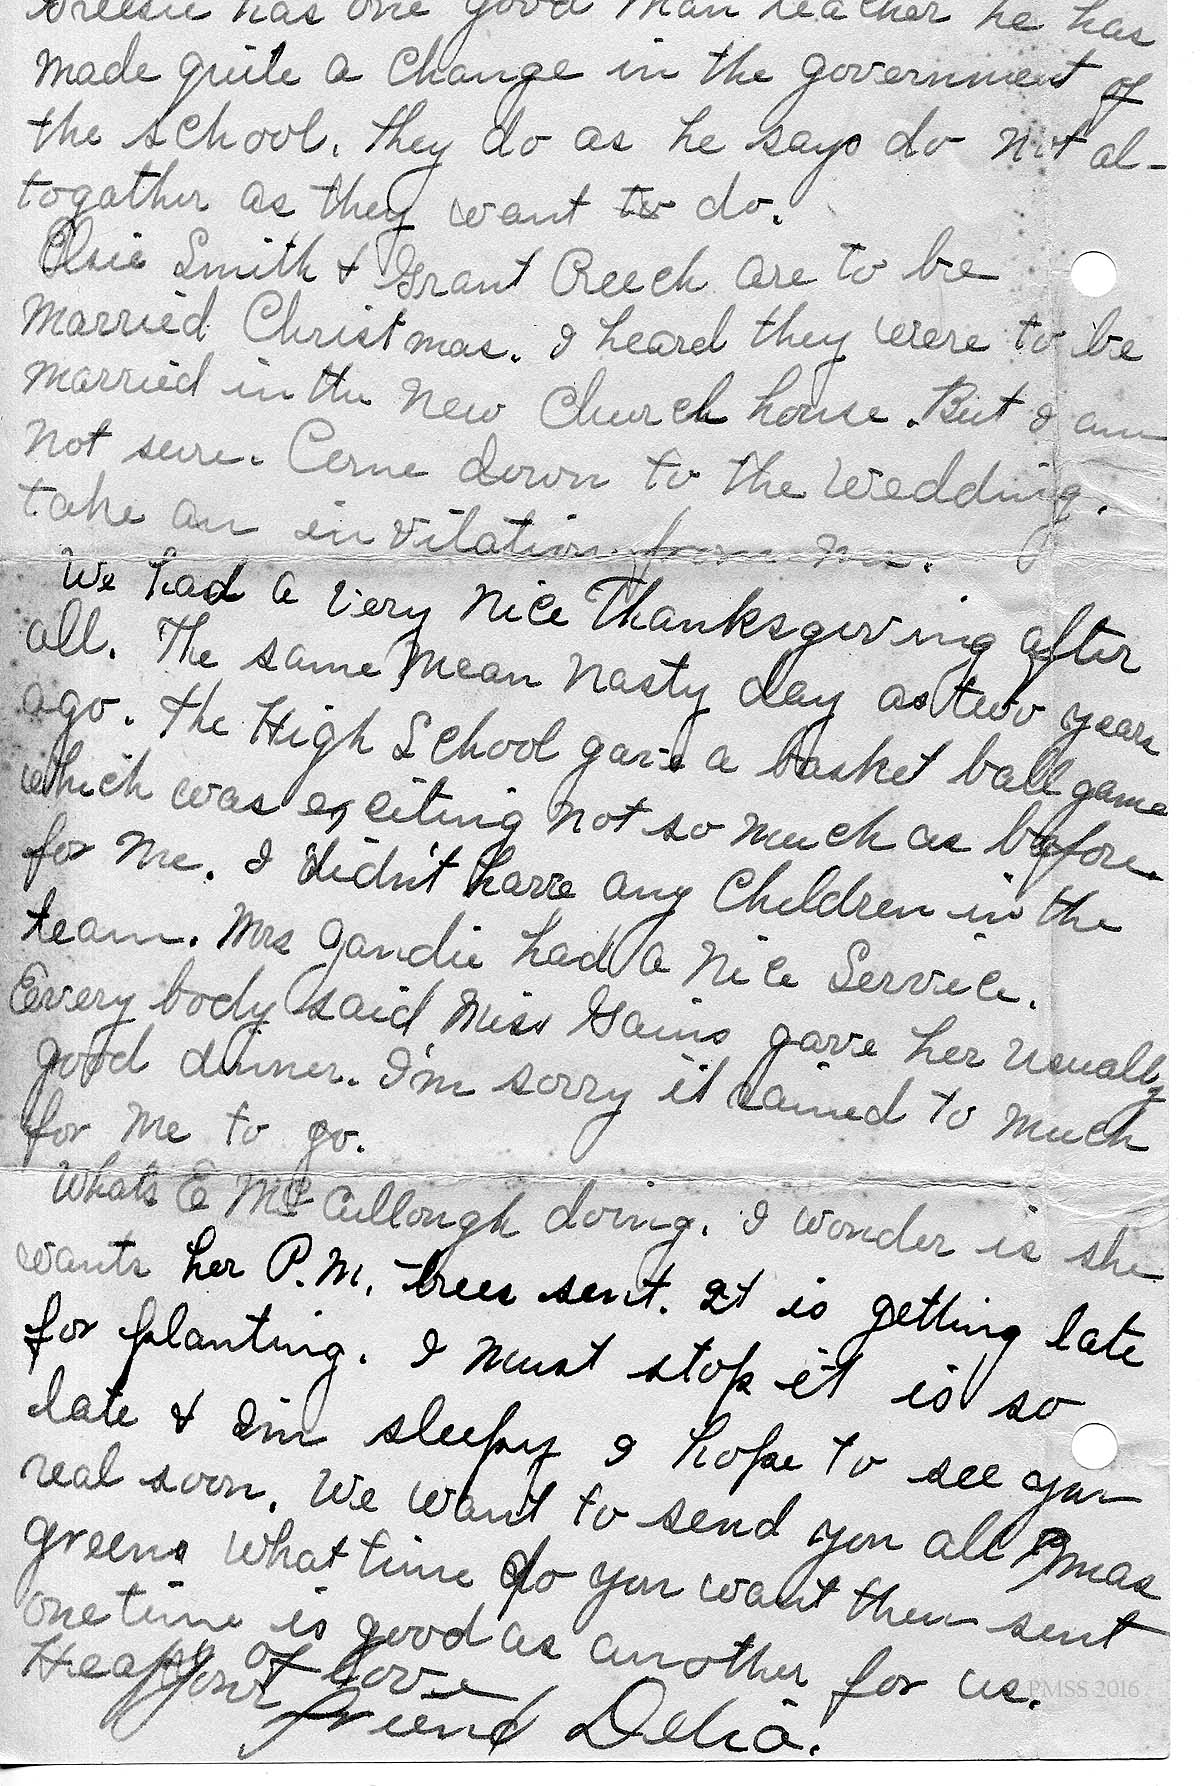 has one good man teacher he has
made quite a change in the government of
the school. they do as he says do not al-
togather as they want to do.
Elsie Smith & Grant Creech are to be
married Christmas. I heard they were to be
married in the new Church house. But I am
not sure. Come down to the Wedding.
take an invitation from me.
We had a very nice Thanksgiving after
all. The same mean nasty day as two years
ago. the High School gave a basket ball game
which was exciting not so much as before
for me. I didn't have any Children in the
team. Mrs Zandie had a nice Service.
Every body said Miss Gains gave her usually
good dinner. I'm sorry it rained to much
for me to go.
Whats E McCullough doing. I wonder is she
wants her P.M. trees sent. It is getting late
for planting. I must stop it is so
late & I'm sleepy I hope to see you
real soon. We want to send you all Xmas
greens what time do you want them sent
one time is good as another for us.
Heaps of love
Your
friend Delia.
PMSS 2016